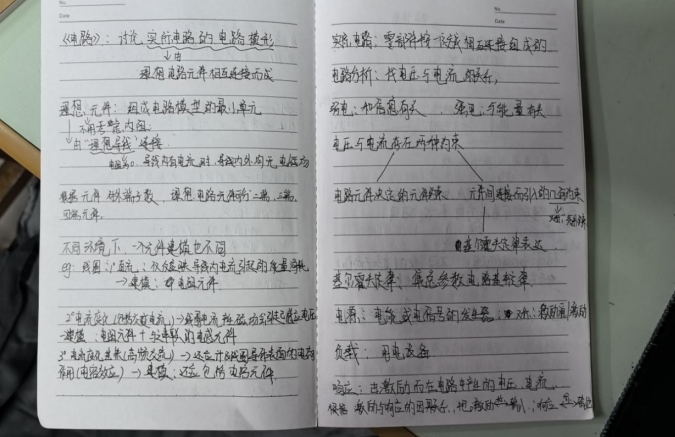 No.
Date
《电路》：讨论实际电路的电路模形
↓由
理想电路元件相互连接而成
理想元件：组成电路模型的最小单元
→不用考虑内因
由"理想导线"连接
电阻为0，导线内有电流时，导线内外均无电
根据元件 端子数，理想电路元件分二端、三端、
四端元件。
不同环境下，一个元件建模也不同
eg：线圈：1°直流：仅仅反映导线内电流引起的能量消耗
→建模：电阻元件
2°电流变化(低频交变电流)→
建模：电阻元件+串联的电感元件
3° (高频交流)→还应计及线圈导体表面的电荷
作用(电容效应)→建模：还应包括电容元件
No.
Date
实际电路：零部件按一定 相互连接组成的
电路分析：找电压与电流的关系，
弱电：和信息有关 强电：与能量有关
电压与电流存在两种约束
电路元件决定的元件约束 元件间连接而引入的几何约束
基尔霍夫定律表达
基尔霍夫定律，集总参数电路基本定律
电源：电能或电信号的发生器 激励
负载：用电设备
响应：由激励而在电路中产生的电压、电流
根据激励与响应的因果关系，把激励 输入，响应 输出